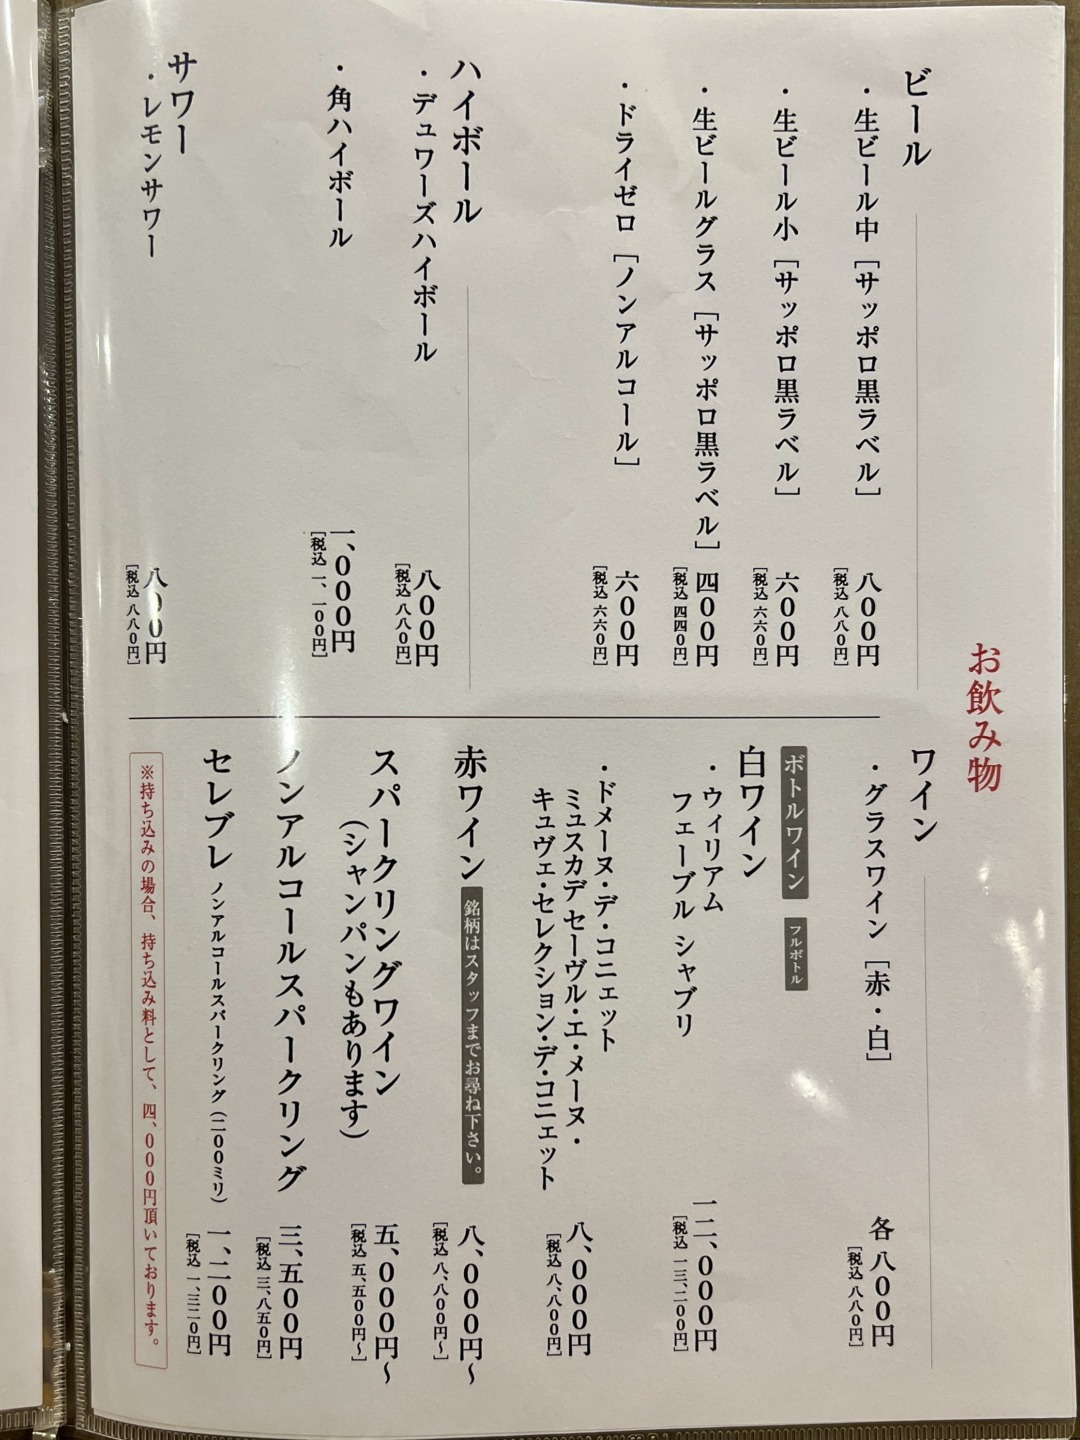 お飲み物
ビール
・生ビール中［サッポロ黒ラベル］ 八〇〇円
［税込 八八〇円］
・生ビール小［サッポロ黒ラベル］ 六〇〇円
［税込 六六〇円］
・生ビールグラス［サッポロ黒ラベル］ 四〇〇円
［税込 四四〇円］
・ドライゼロ［ノンアルコール］ 六〇〇円
［税込 六六〇円］
ハイボール
・デュワーズハイボール 八〇〇円
［税込 八八〇円］
・角ハイボール 一、〇〇〇円
［税込 一、一〇〇円］
サワー
・レモンサワー 八〇〇円
［税込 八八〇円］
ワイン
・グラスワイン［赤・白］ 各 八〇〇円
［税込 八八〇円］
ボトルワイン フルボトル
白ワイン
・ウィリアム
フェーブル シャブリ 一二、〇〇〇円
［税込 一三、二〇〇円］
・ドメーヌ・デ・コニェット
ミュスカデ セーヴル・エ・メーヌ・
キュヴェ・セレクション・デ・コニェット 八、〇〇〇円
［税込 八、八〇〇円］
赤ワイン 銘柄はスタッフまでお尋ね下さい。 八、〇〇〇円〜
［税込 八、八〇〇円〜］
スパークリングワイン 五、〇〇〇円〜
（シャンパンもあります） ［税込 五、五〇〇円〜］
ノンアルコールスパークリング 三、五〇〇円
［税込 三、八五〇円］
セレブレ ノンアルコールスパークリング（二〇〇ミリ） 一、二〇〇円
［税込 一、三二〇円］
※持ち込みの場合、持ち込み料として、四、〇〇〇円頂いております。